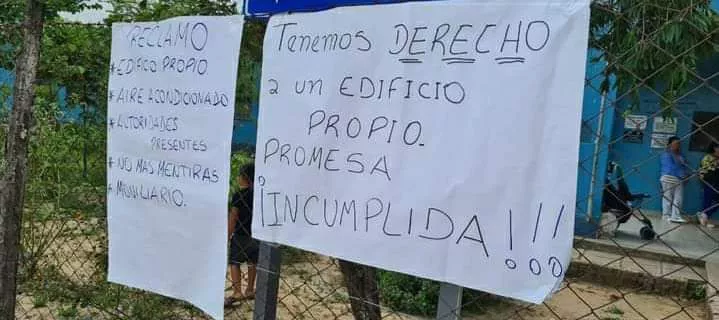 RECLAMO
* EDIFICO PROPIO
* AIRE ACONDICIONADO
* AUTORIDADES
PRESENTES
* NO MAS MENTIRAS
* MOVILIARIO.
Tenemos DERECHO
a un EDIFICIO
PROPIO.
PROMESA
¡INCUMPLIDA!!!